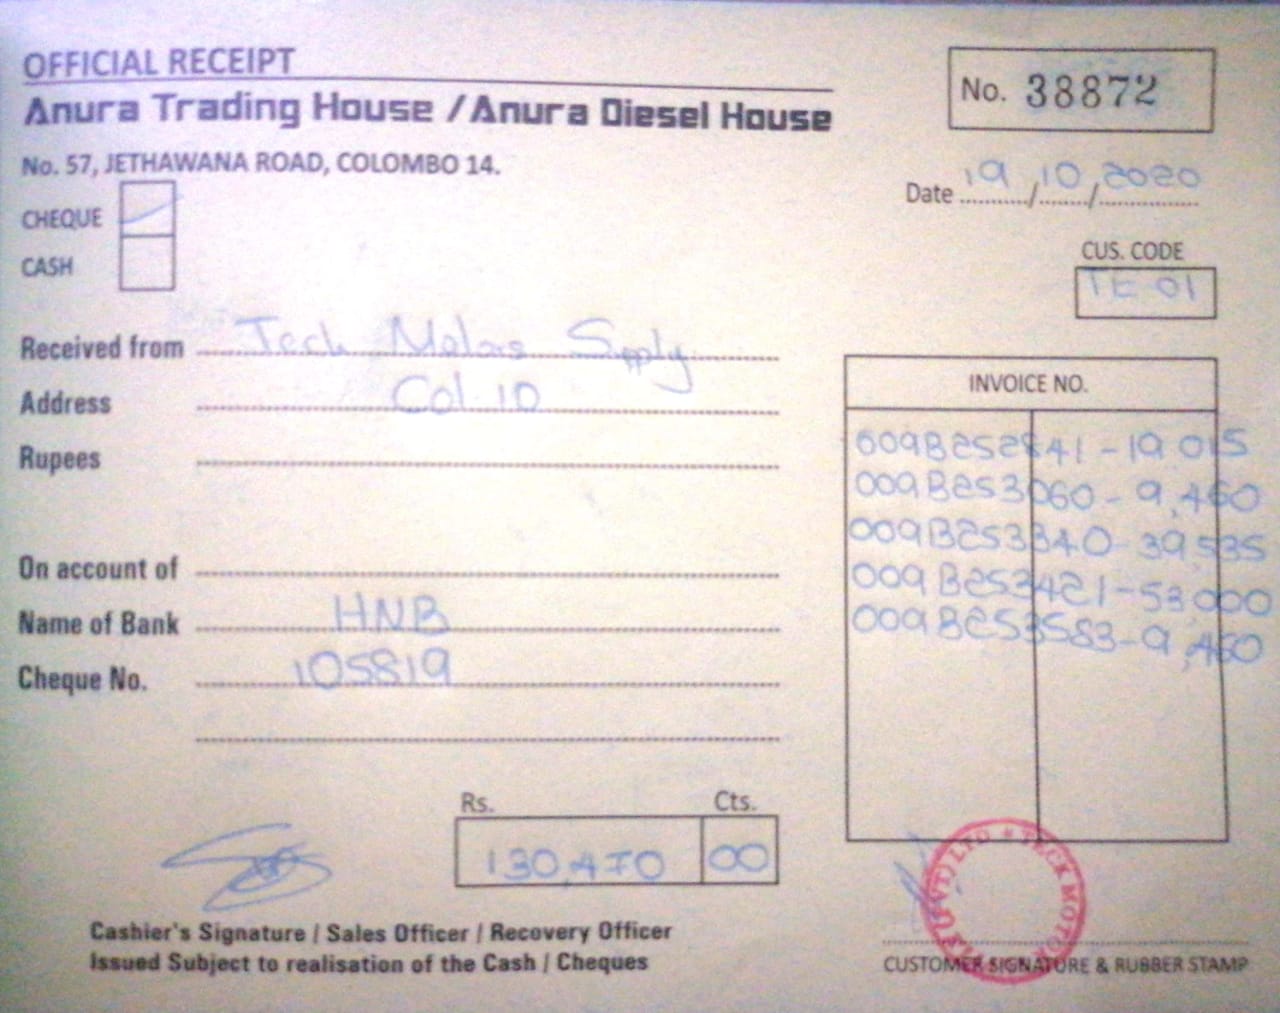 OFFICIAL RECEIPT
Anura Trading House / Anura Diesel House
No. 57, JETHAWANA ROAD, COLOMBO 14.
No. 38872
Date 19/10/2020
CHEQUE
CASH
CUS. CODE
TE 01
Received from Tech Motors Supply
Address Col-10
Rupees
On account of
Name of Bank HNB
Cheque No. 105819
INVOICE NO.
009B252841-19 015
009B253060-9,460
009B253340-39,535
009B253421-53,000
009B253583-9,460
Rs. Cts.
130,470 00
Cashier's Signature / Sales Officer / Recovery Officer
Issued Subject to realisation of the Cash / Cheques
TECK MOTOR (PVT) LTD
CUSTOMER SIGNATURE & RUBBER STAMP